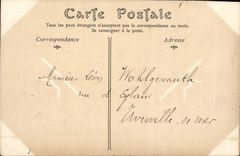 Carte Postale
Tous les pays étrangers n'acceptent pas la correspondance au recto.
Se renseigner à la poste.
Correspondance
Adresse
Monsieur Léon Wohlgemuth
rue d'
sur mer